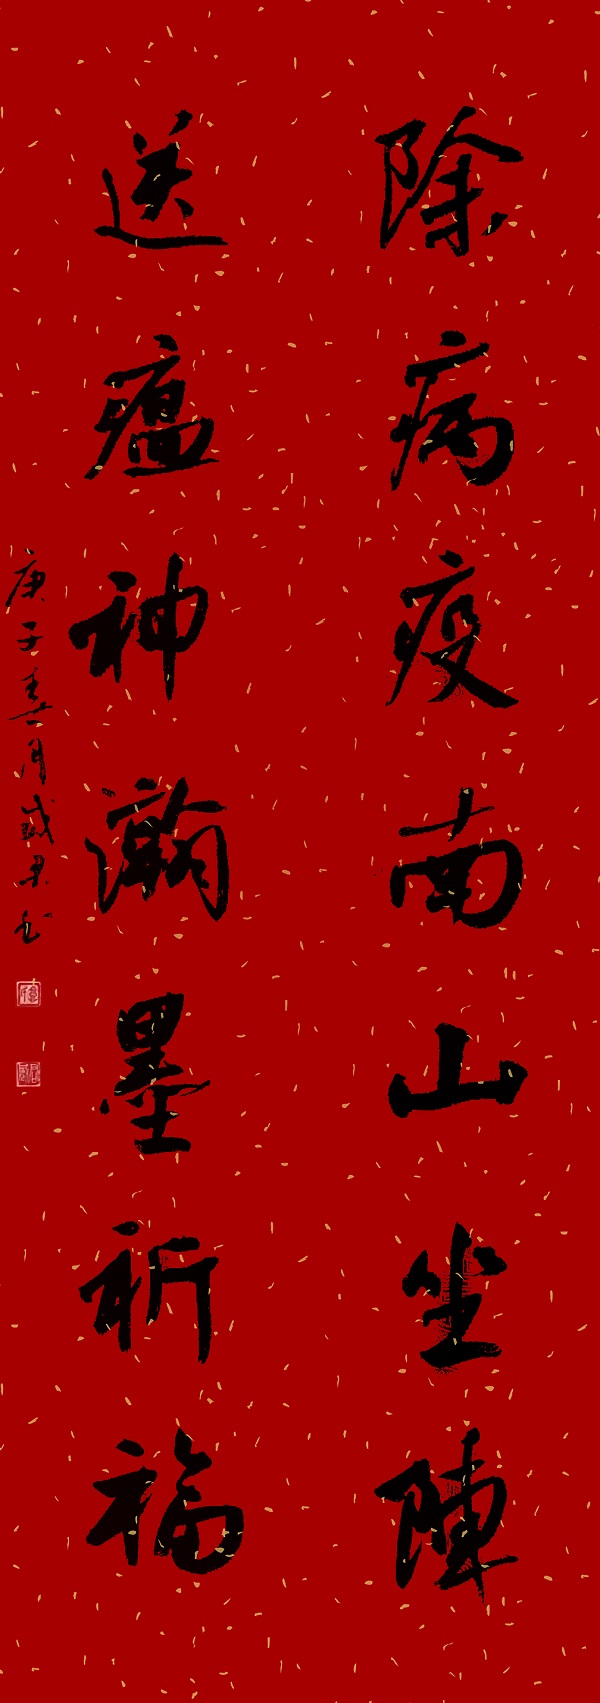 除病疫南山坐陣
送瘟神瀚墨祈福
庚子春月成果书